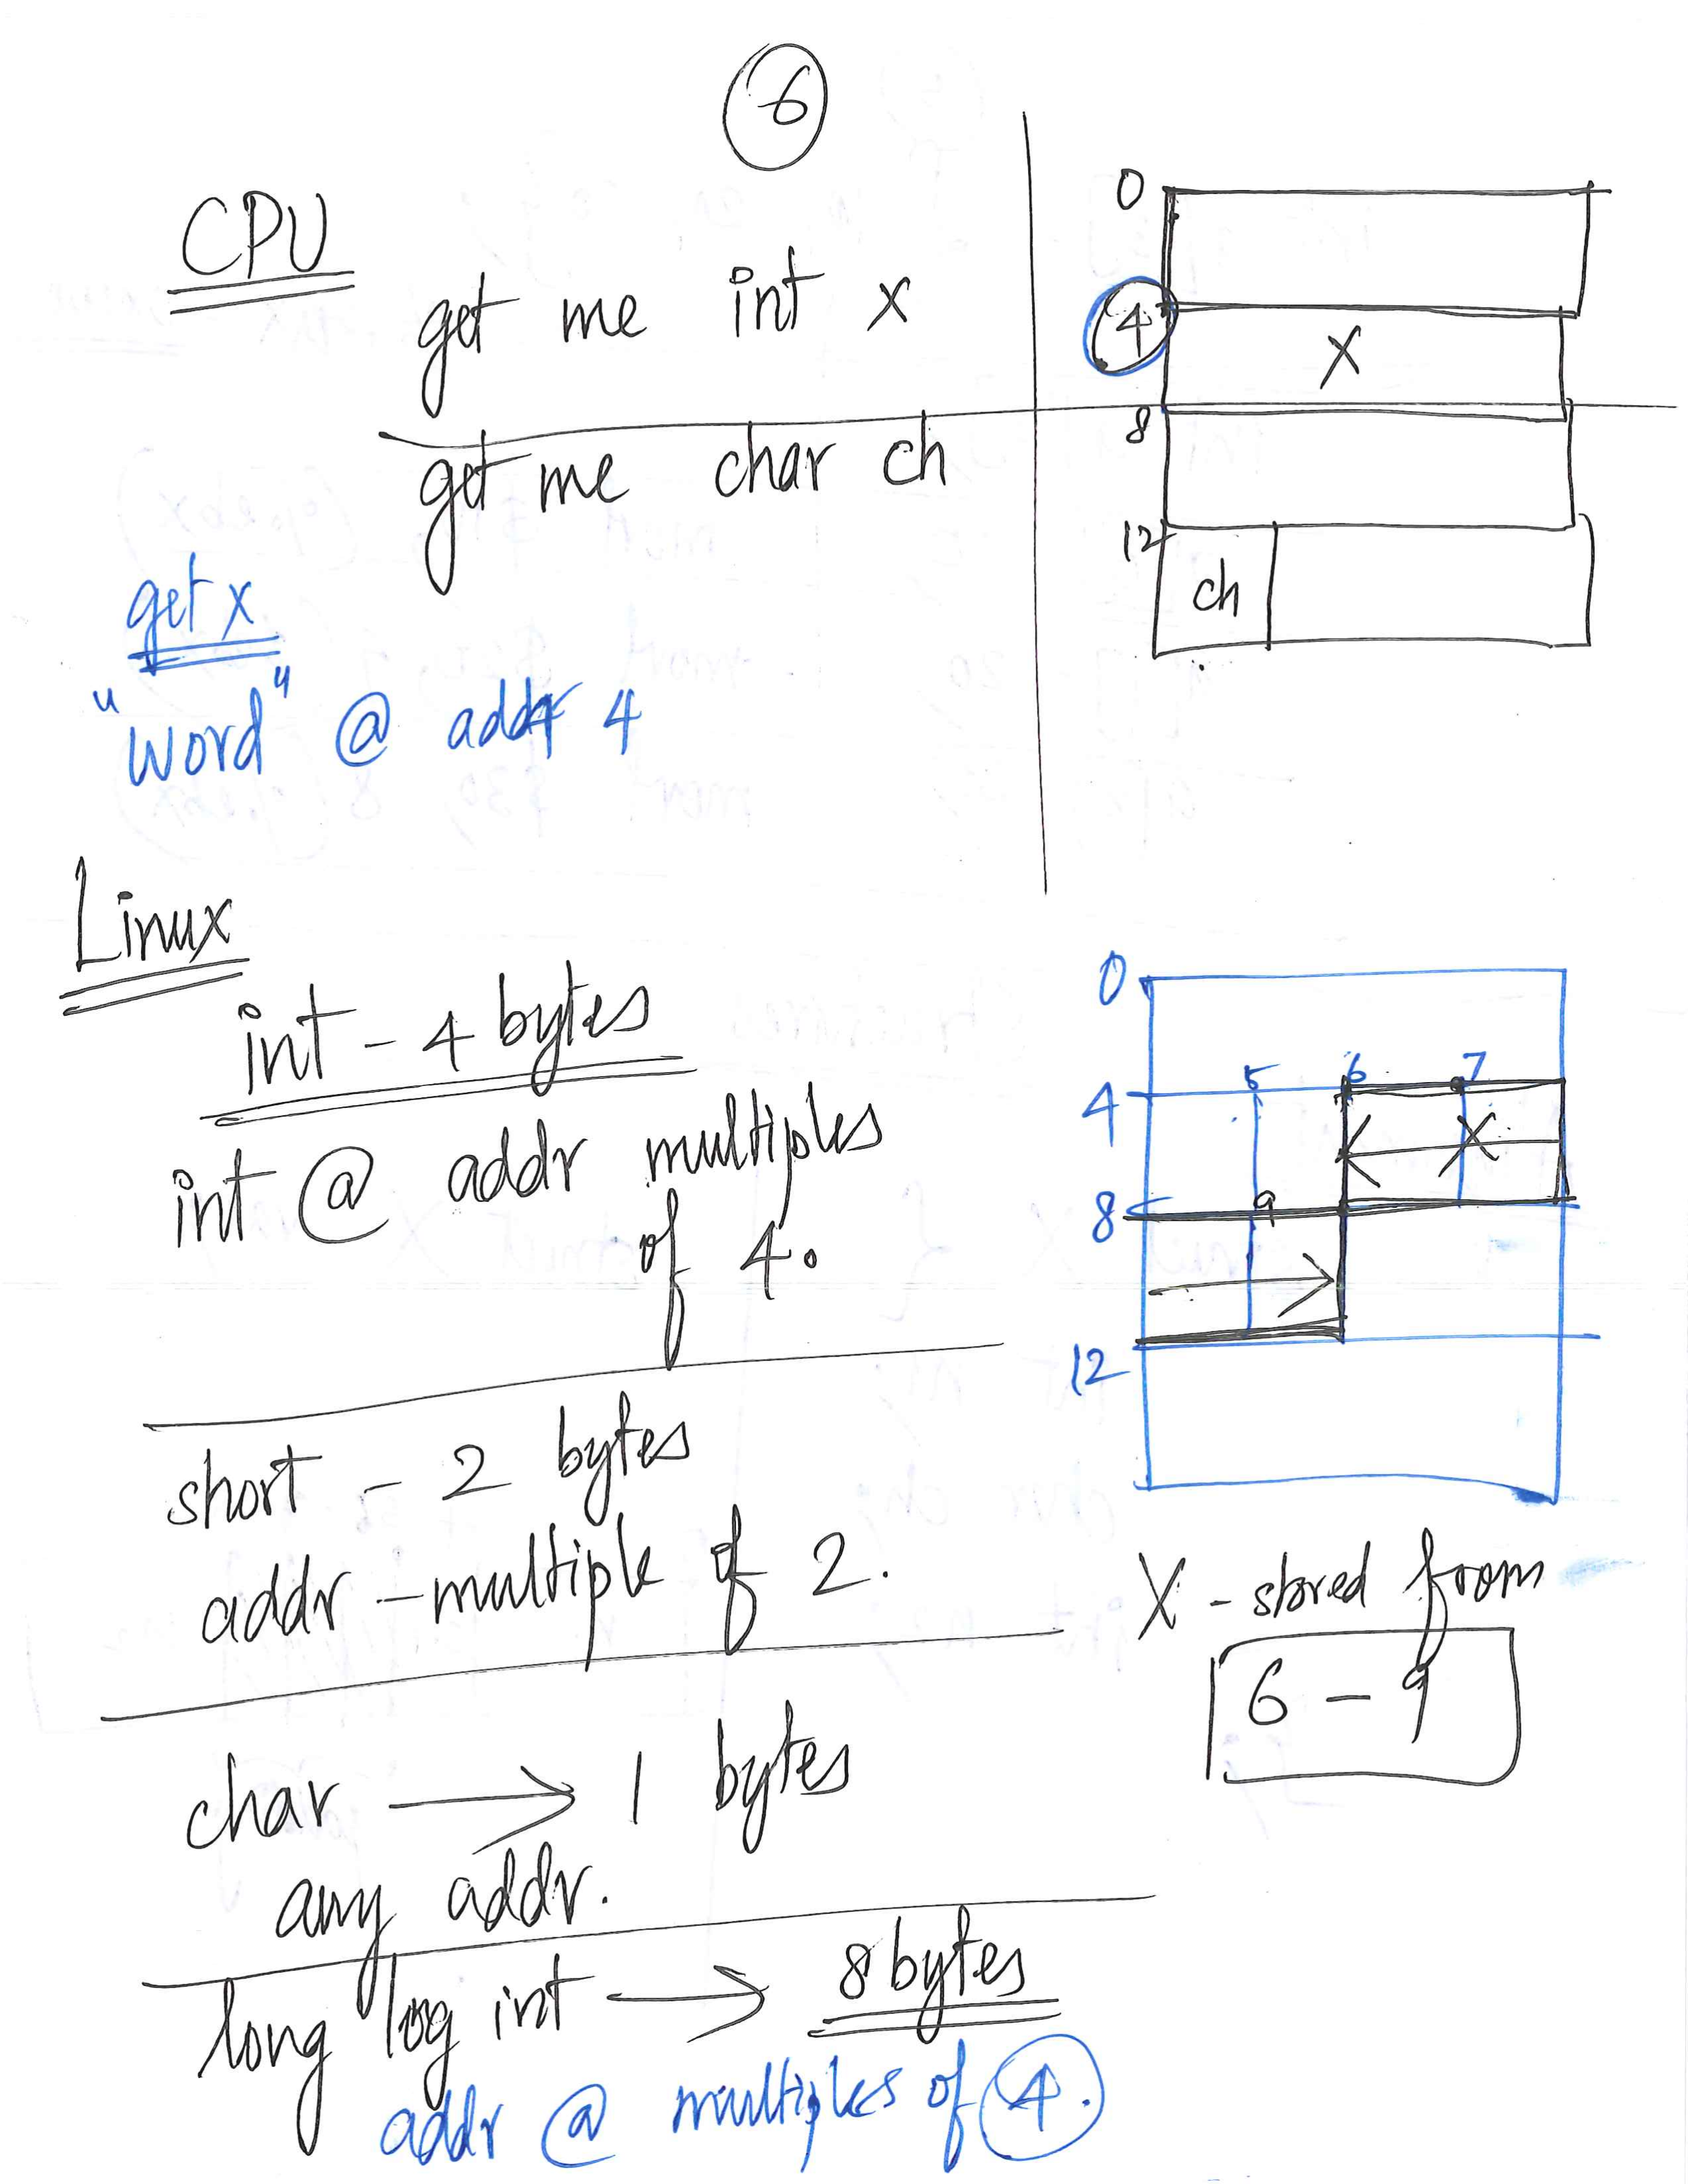 6
CPU
get me int x
get me char ch
get x
"word" @ addr 4
0
4
X
8
12
ch
Linux
int - 4 bytes
int @ addr multiples
of 4.
short - 2 bytes
addr - multiple of 2.
char → 1 bytes
any addr.
long log int → 8 bytes
addr @ multiples of 4.
0
4
5
6
7
X
8
9
12
X - stored from
6 - 9